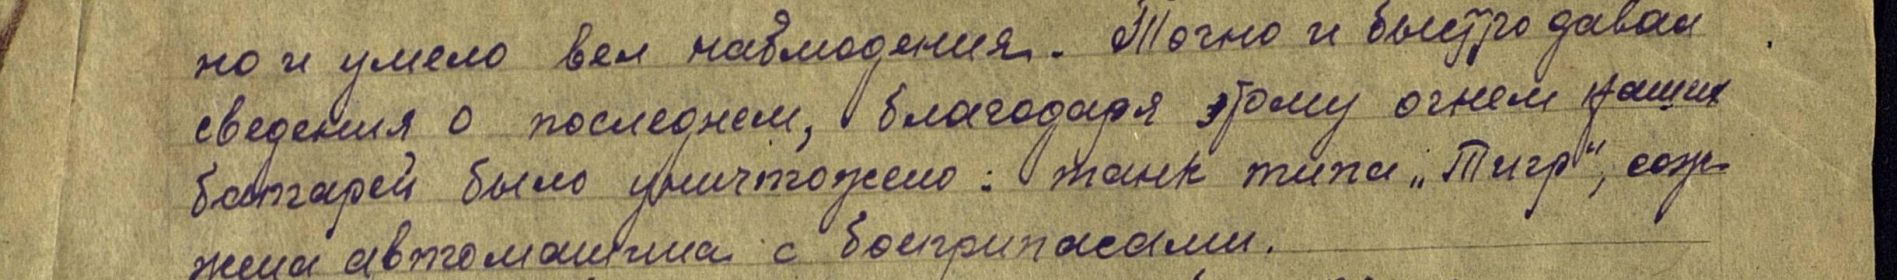 но и умело вел наблюдения. Точно и быстро давал
сведения о последнем, благодаря этому огнем наших
батарей было уничтожено: танк типа „Тигр“, сож-
жена автомашина с боеприпасами.